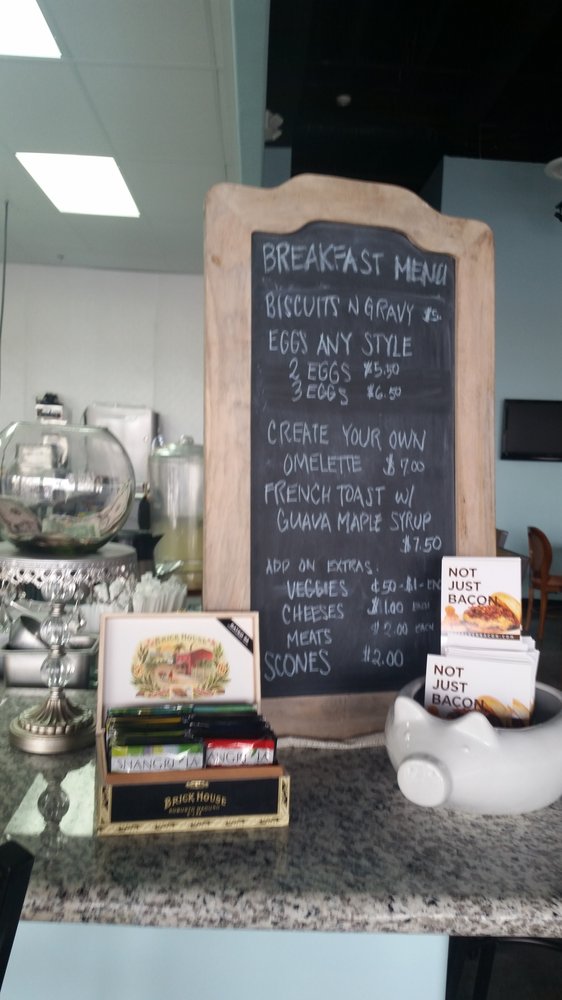 BREAKFAST MENU
BISCUITS N GRAVY $5.
EGGS ANY STYLE
2 EGGS $5.50
3 EGGS $6.50
CREATE YOUR OWN
OMELETTE $7.00
FRENCH TOAST W/
GUAVA MAPLE SYRUP
$7.50
ADD ON EXTRAS:
VEGGIES ¢50 - $1 - EACH
CHEESES $1.00 EACH
MEATS $2.00 EACH
SCONES $2.00
NOT
JUST
BACON
NOT
JUST
BACON
BRICK HOUSE
SHANGRI LA
ANGRI LA
BRICK HOUSE